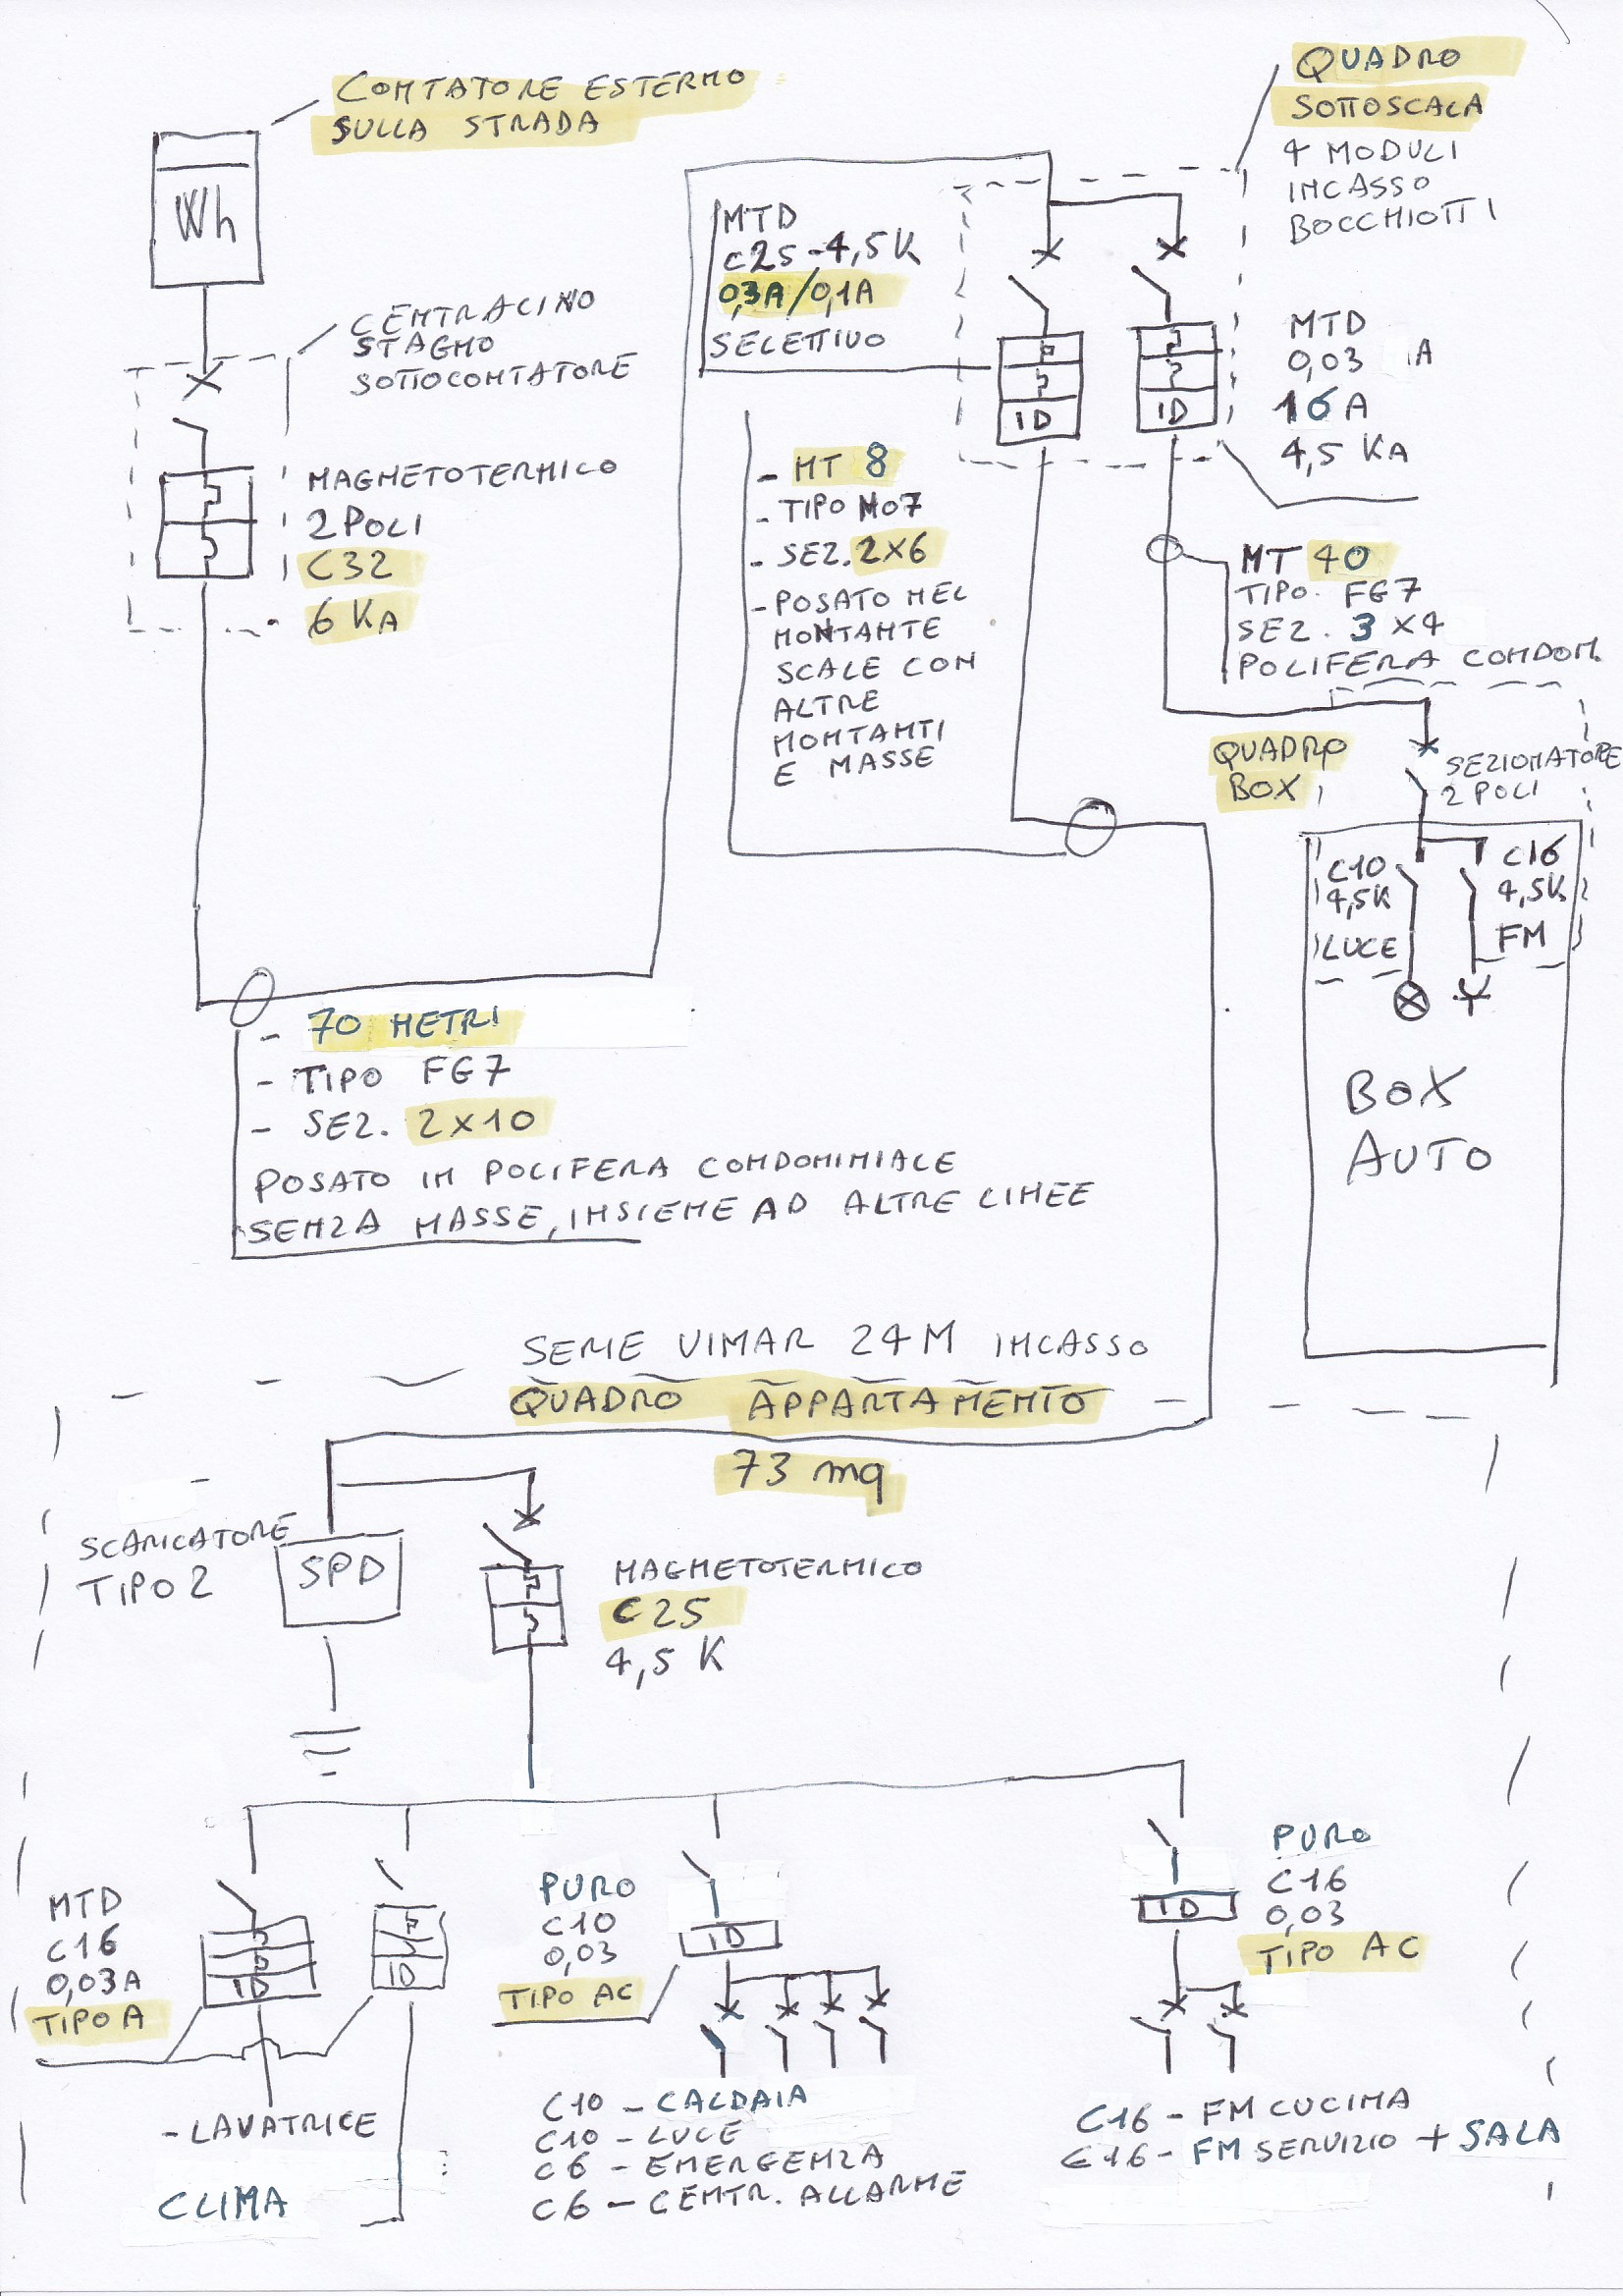 CONTATORE ESTERNO
SULLA STRADA
Wh
CENTRALINO
STAGNO
SOTTOCONTATORE
MAGNETOTERMICO
2 POLI
C32
6 KA
QUADRO
SOTTOSCALA
4 MODULI
INCASSO
BOCCHIOTTI
MTD
C25 - 4,5 K
0,3A/0,1A
SELETTIVO
ID
ID
MTD
0,03 A
16 A
4,5 KA
- MT 8
- TIPO N07
- SEZ. 2X6
- POSATO NEL
MONTANTE
SCALE CON
ALTRE
MONTANTI
E MASSE
MT 40
TIPO. FG7
SEZ. 3 X4
POLIFERA CONDOM.
QUADRO
BOX
SEZIONATORE
2 POLI
C10
4,5K
LUCE
C16
4,5K
FM
BOX
AUTO
- 70 METRI
- TIPO FG7
- SEZ. 2X10
POSATO IN POLIFERA CONDOMINIALE
SENZA MASSE, INSIEME AD ALTRE LINEE
SERIE VIMAR 24M INCASSO
QUADRO APPARTAMENTO
73 mq
SCARICATORE
TIPO 2
SPD
MAGNETOTERMICO
C25
4,5 K
MTD
C16
0,03A
TIPO A
ID
ID
PURO
C10
0,03
TIPO AC
ID
PURO
C16
0,03
TIPO AC
ID
- LAVATRICE
CLIMA
C10 - CALDAIA
C10 - LUCE
C6 - EMERGENZA
C6 - CENTR. ALLARME
C16 - FM CUCINA
C16 - FM SERVIZIO + SALA